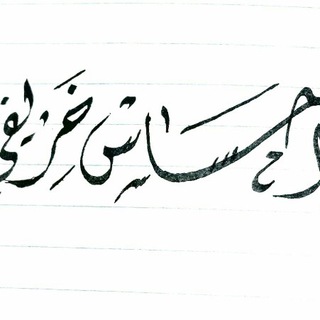 احساس خريفي